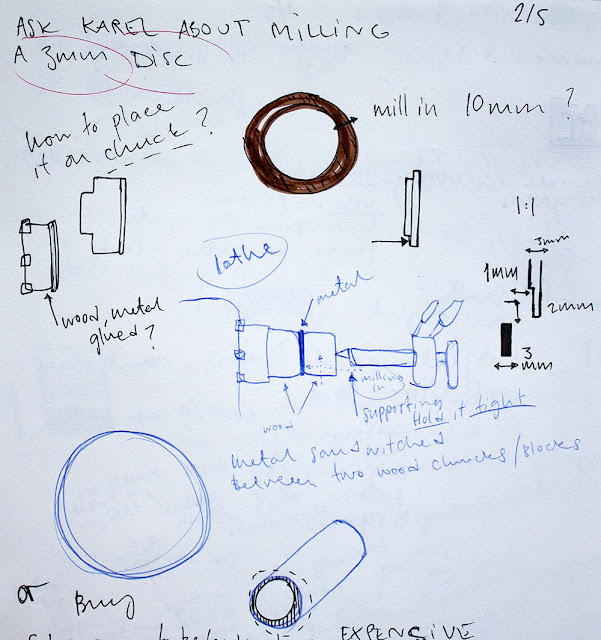 ASK KAREL ABOUT MILLING
2/5
A 3mm DISC
how to place
it on chuck?
mill in 10mm?
1:1
lathe
3mm
1mm
metal
2mm
wood, metal
glued?
3
mm
milling
in
wood
supporting
Hold it tight
metal sandwitched
between two wood chucks/blocks
or Buy
EXPENSIVE